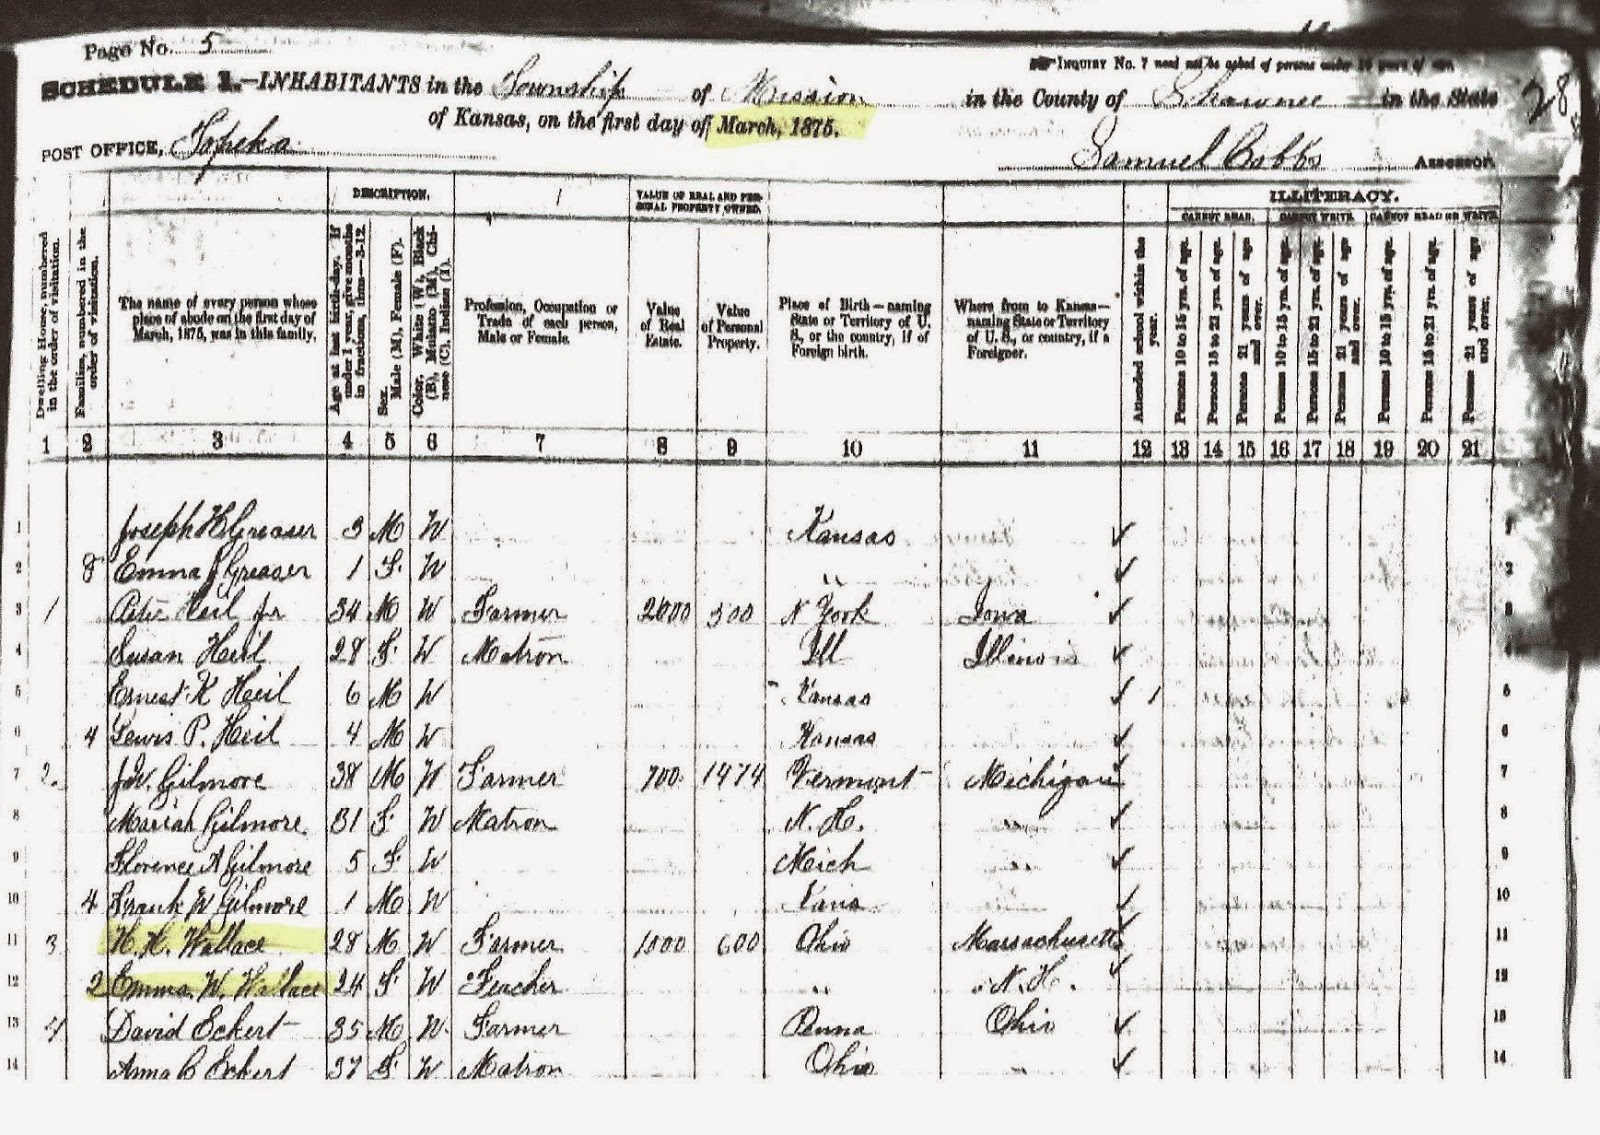 Page No. 5
INQUIRY No. 7 need not be asked of persons under 10 years of age
SCHEDULE 1.—INHABITANTS in the Township of Mission in the County of Shawnee in the State
28
of Kansas, on the first day of March, 1875.
POST OFFICE, Topeka
Samuel Cobbs Assessor.
DESCRIPTION.
VALUE OF REAL AND PERSONAL PROPERTY OWNED.
ILLITERACY.
CANNOT READ. CANNOT WRITE. CANNOT READ OR WRITE.
Dwelling House, numbered in the order of visitation.
Families, numbered in the order of visitation.
The name of every person whose
place of abode on the first day of
March, 1875, was in this family.
Age at last birth-day. If under 1 year, give months in fractions, thus—3-12
Sex. Male (M), Female (F).
Color. White (W), Black (B), Mulatto (M), Chinese (C), Indian (I).
Profession, Occupation or
Trade of each person,
Male or Female.
Value
of Real
Estate.
Value
of Personal
Property.
Place of Birth—naming
State or Territory of U.
S., or the country, if of
Foreign birth.
Where from to Kansas—
naming State or Territory
of U. S., or country, if a
Foreigner.
Attended school within the year.
Persons 10 to 15 yrs. of age.
Persons 15 to 21 yrs. of age.
Persons 21 years of age and over.
Persons 10 to 15 yrs. of age.
Persons 15 to 21 yrs. of age.
Persons 21 years of age and over.
Persons 10 to 15 yrs. of age.
Persons 15 to 21 yrs. of age.
Persons 21 years of age and over.
1 2 3 4 5 6 7 8 9 10 11 12 13 14 15 16 17 18 19 20 21
1 Joseph H Greaser 3 M W Kansas ✓ 1
2 8 Emma J Greaser 1 F W " ✓ 2
3 1 Peter Heil jr 34 M W Farmer 2000 300 N York Iowa ✓ 3
4 Susan Heil 28 F W Matron Ill Illinois ✓ 4
5 Ernest K Heil 6 M W Kansas ✓ 1 5
6 4 Lewis P. Heil 4 M W Kansas ✓ 6
7 2. J.W. Gilmore 38 M W Farmer 700 1474 Vermont Michigan ✓ 7
8 Mariah Gilmore 31 F W Matron N. H. " ✓ 8
9 Florence A Gilmore 5 F W Mich " ✓ 9
10 4 Frank W Gilmore 1 M W Kans ✓ 10
11 3 H. H. Wallace 28 M W Farmer 1000 600 Ohio Massachusetts ✓ 11
12 2 Emma W. Wallace 24 F W Teacher " N. H. ✓ 12
13 4 David Eckert 35 M W Farmer Penna Ohio ✓ 13
14 Anna C Eckert 37 F W Matron Ohio " ✓ 14